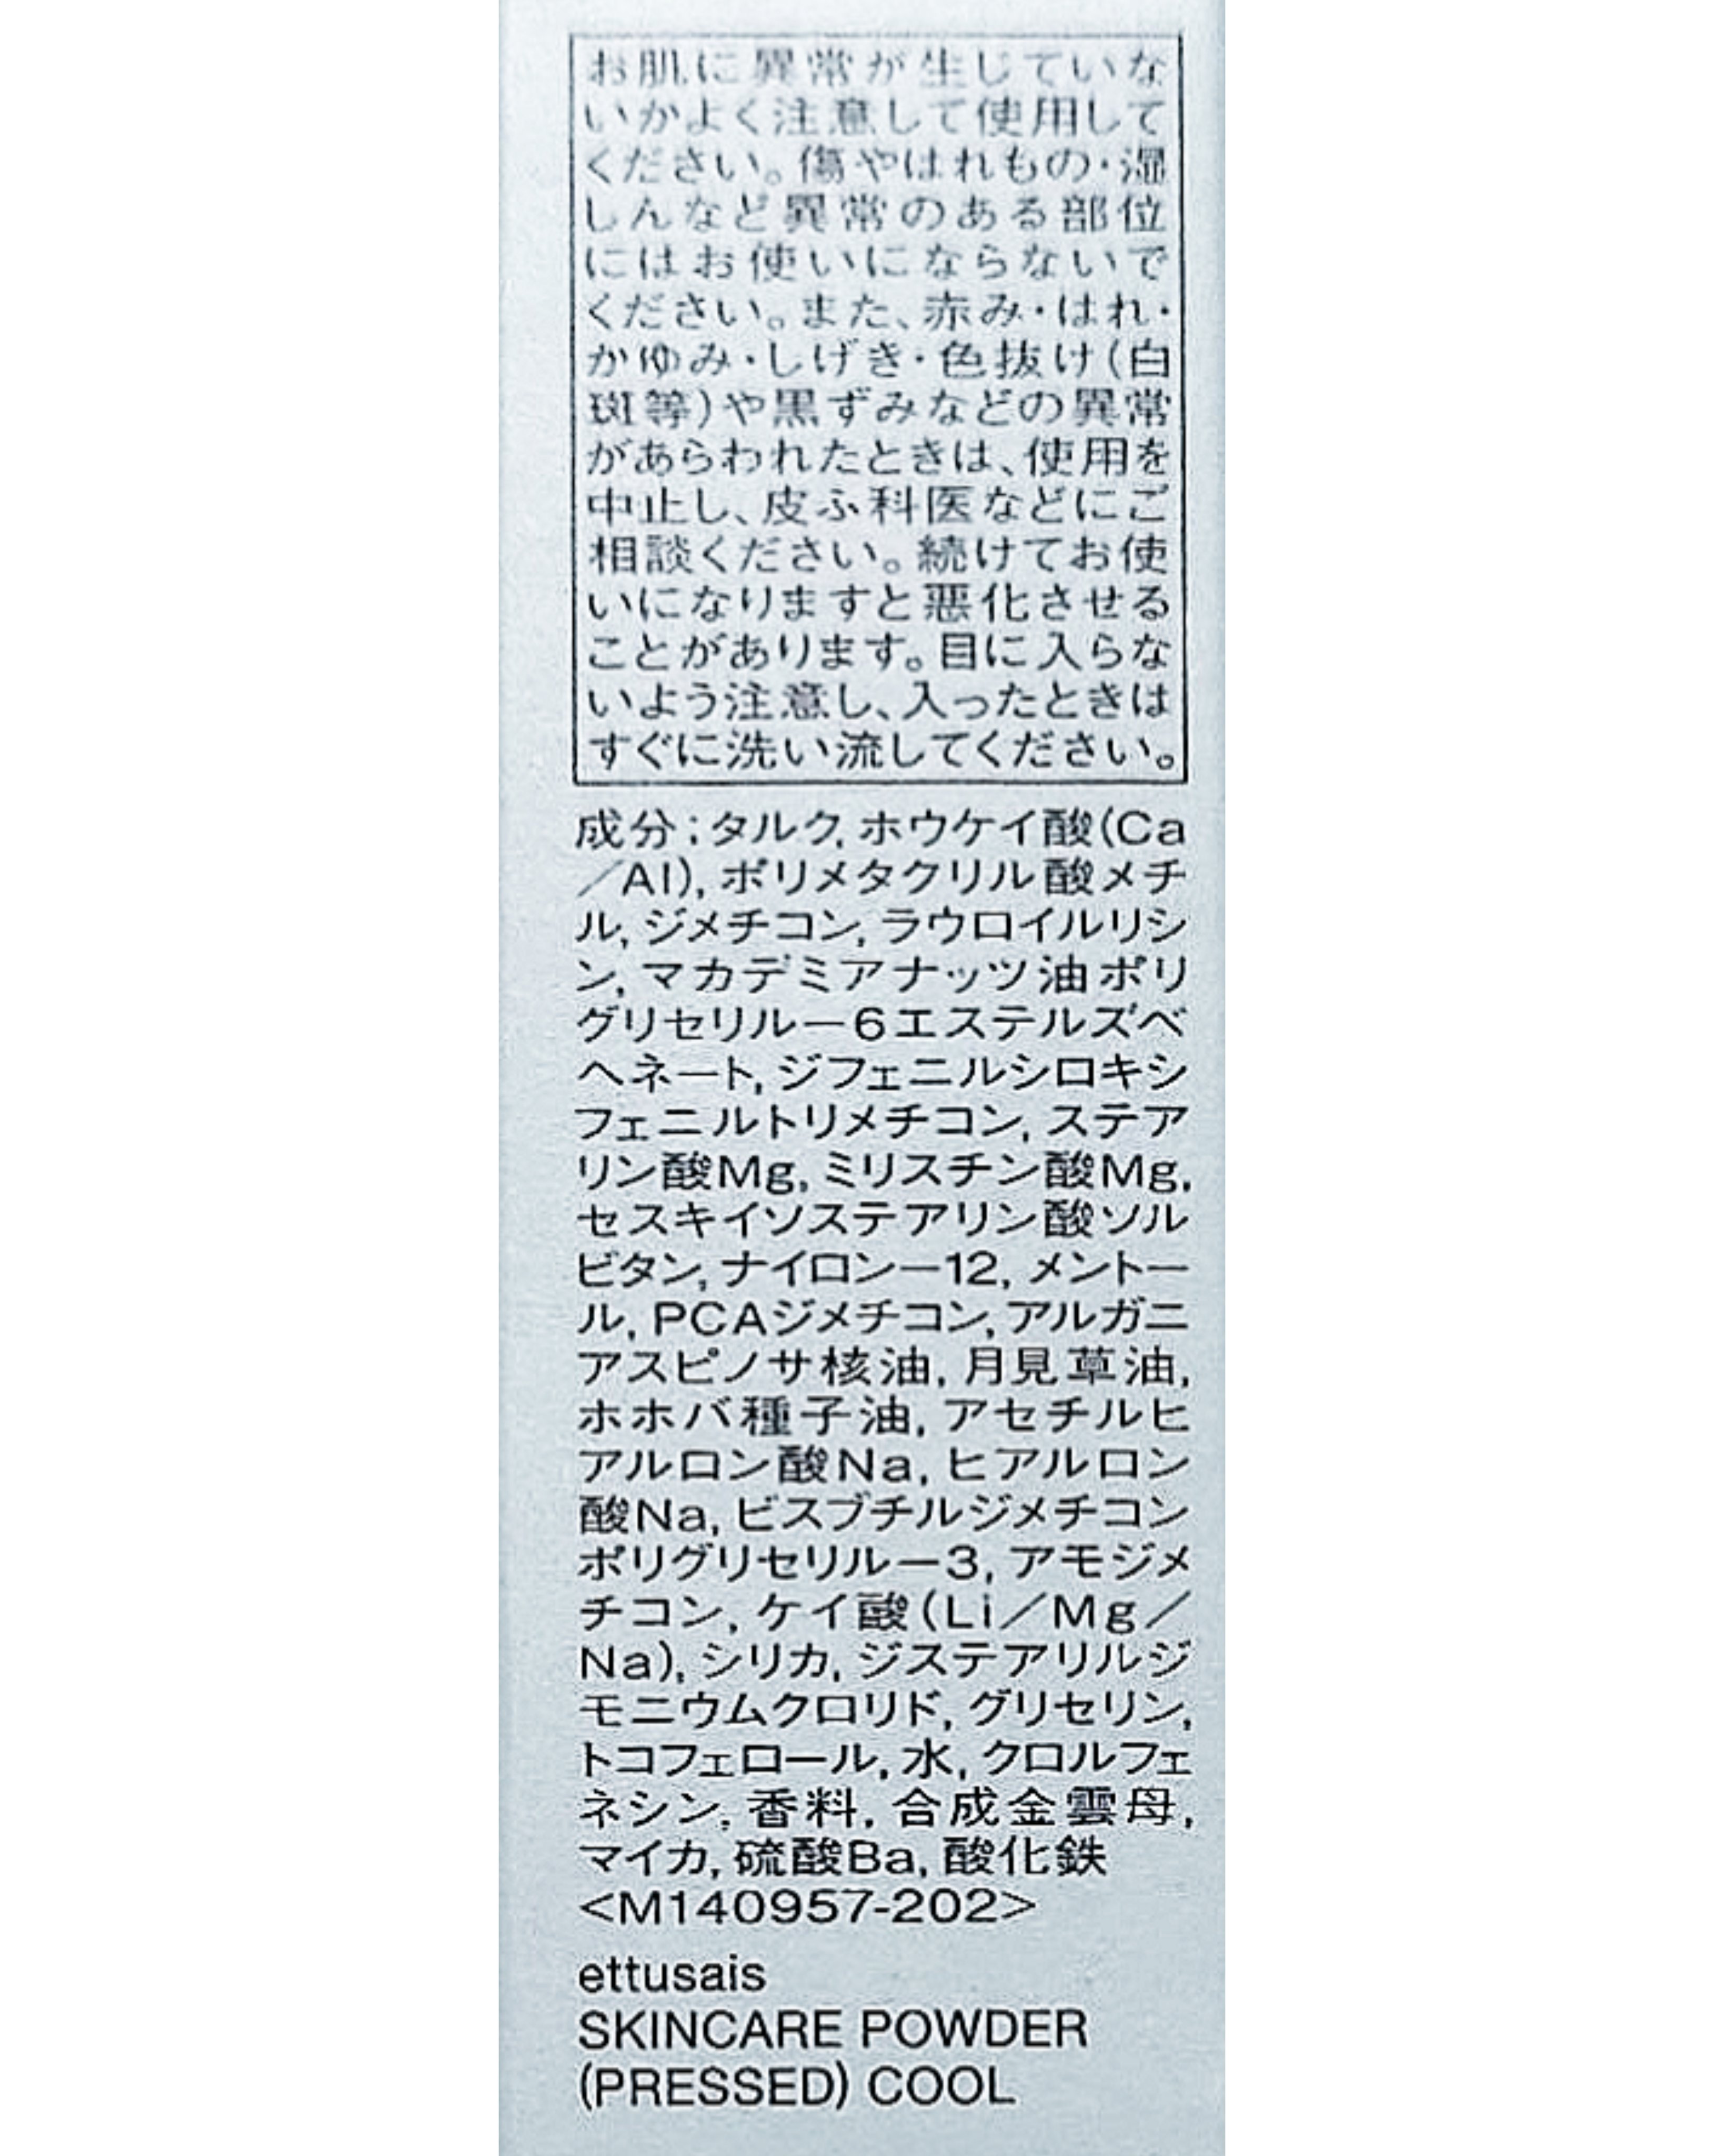 お肌に異常が生じていな
いかよく注意して使用して
ください。傷やはれもの・湿
しんなど異常のある部位
にはお使いにならないで
ください。また、赤み・はれ・
かゆみ・しげき・色抜け(白
斑等)や黒ずみなどの異常
があらわれたときは、使用を
中止し、皮ふ科医などにご
相談ください。続けてお使
いになりますと悪化させる
ことがあります。目に入らな
いよう注意し、入ったときは
すぐに洗い流してください。
成分:タルク, ホウケイ酸(Ca
/Al), ポリメタクリル酸メチ
ル, ジメチコン, ラウロイルリシ
ン, マカデミアナッツ油ポリ
グリセリルー6エステルズベ
ヘネート, ジフェニルシロキシ
フェニルトリメチコン, ステア
リン酸Mg, ミリスチン酸Mg,
セスキイソステアリン酸ソル
ビタン, ナイロンー12, メントー
ル, PCAジメチコン, アルガニ
アスピノサ核油, 月見草油,
ホホバ種子油, アセチルヒ
アルロン酸Na, ヒアルロン
酸Na, ビスブチルジメチコン
ポリグリセリルー3, アモジメ
チコン, ケイ酸(Li/Mg/
Na), シリカ, ジステアリルジ
モニウムクロリド, グリセリン,
トコフェロール, 水, クロルフェ
ネシン, 香料, 合成金雲母,
マイカ, 硫酸Ba, 酸化鉄
<M140957-202>
ettusais
SKINCARE POWDER
(PRESSED) COOL